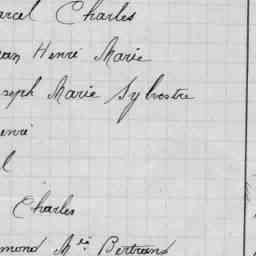 arcel Charles
ean Henri Marie
seph Marie Sylvestre
enri
l
Charles
mond Mie Bertrand